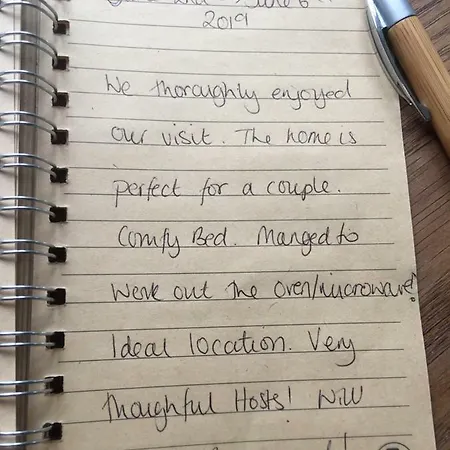 June 6th
2019
We thoroughly enjoyed
our visit. The home is
perfect for a couple.
Comfy Bed. Manged to
Work out the oven/microwave!
Ideal location. Very
Thoughful Hosts! Will